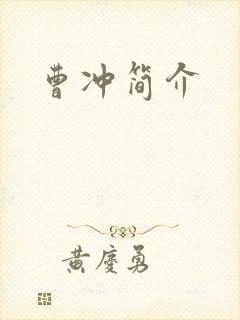 曹冲简介
黄庆勇